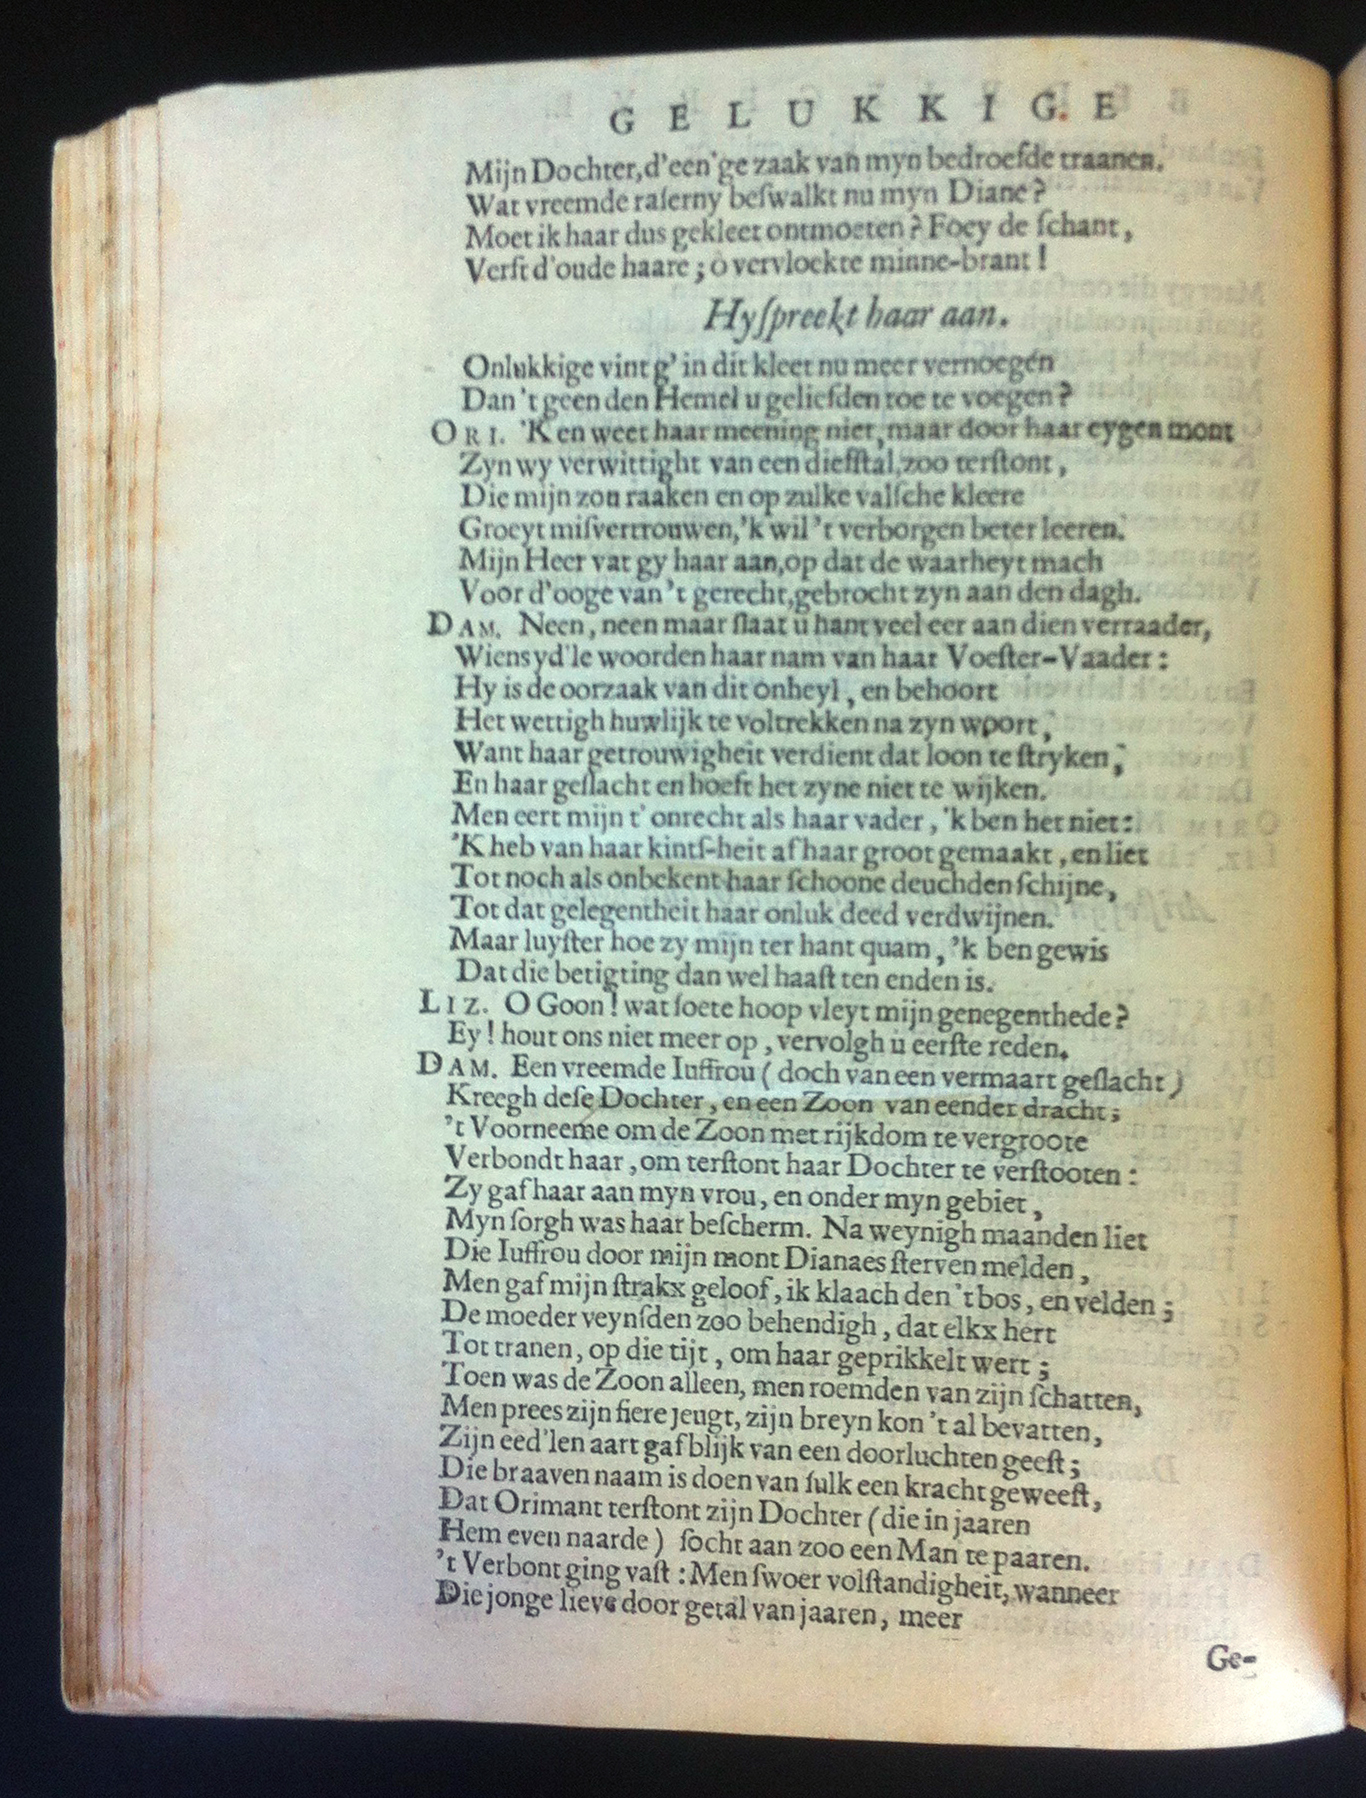 GELUKKIGE
Mijn Dochter, d'een'ge zaak van myn bedroefde traanen.
Wat vreemde raſerny beſwalkt nu myn Diane?
Moet ik haar dus gekleet ontmoeten? Foey de ſchant,
Verft d'oude haare; o vervloekte minne-brant!
Hy ſpreekt haar aan.
Onlukkige vint g' in dit kleet nu meer vernoegen
Dan 't geen den Hemel u geliefden toe te voegen?
ORI. 'K en weet haar meening niet, maar door haar eygen mont
Zyn wy verwittight van een diefſtal, zoo terſtont,
Die mijn zou raaken en op zulke valſche kleere
Groeyt miſvertrouwen, 'k wil 't verborgen beter leeren.
Mijn Heer vat gy haar aan, op dat de waarheyt mach
Voor d'ooge van 't gerecht, gebrocht zyn aan den dagh.
DAM. Neen, neen maar ſlaat u hant veel eer aan dien verraader,
Wiens yd'le woorden haar nam van haar Voeſter-Vaader:
Hy is de oorzaak van dit onheyl, en behoort
Het wettigh huwlijk te voltrekken na zyn woort,
Want haar getrouwigheit verdient dat loon te ſtryken,
En haar geſlacht en hoeft het zyne niet te wijken.
Men eert mijn t' onrecht als haar vader, 'k ben het niet:
'K heb van haar kintſ-heit af haar groot gemaakt, en liet
Tot noch als onbekent haar ſchoone deuchden ſchijne,
Tot dat gelegentheit haar onluk deed verdwijnen.
Maar luyſter hoe zy mijn ter hant quam, 'k ben gewis
Dat die betigting dan wel haaſt ten enden is.
LIZ. O Goon! wat ſoete hoop vleyt mijn genegenthede?
Ey! hout ons niet meer op, vervolgh u eerſte reden.
DAM. Een vreemde Iuffrou (doch van een vermaart geſlacht)
Kreegh deſe Dochter, en een Zoon van eender dracht;
't Voorneeme om de Zoon met rijkdom te vergroote
Verbondt haar, om terſtont haar Dochter te verſtooten:
Zy gaf haar aan myn vrou, en onder myn gebiet,
Myn ſorgh was haar beſcherm. Na weynigh maanden liet
Die Iuffrou door mijn mont Dianaes ſterven melden,
Men gaf mijn ſtrakx geloof, ik klaach den 't bos, en velden;
De moeder veynſden zoo behendigh, dat elkx hert
Tot tranen, op die tijt, om haar geprikkelt wert;
Toen was de Zoon alleen, men roemden van zijn ſchatten,
Men prees zijn fiere jeugt, zijn breyn kon 't al bevatten,
Zijn eed'len aart gaf blijk van een doorluchten geeſt;
Die braaven naam is doen van ſulk een kracht geweeſt,
Dat Orimant terſtont zijn Dochter (die in jaaren
Hem even naarde) ſocht aan zoo een Man te paaren.
't Verbont ging vaſt: Men ſwoer volſtandigheit, wanneer
Die jonge lieve door getal van jaaren, meer
Ge-